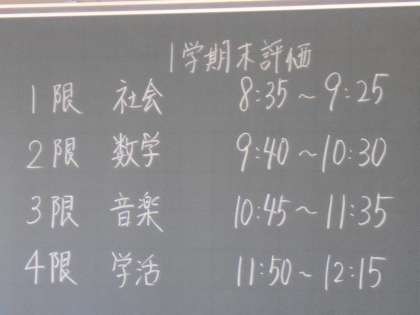 1学期末評価
1限 社会 8:35～9:25
2限 数学 9:40～10:30
3限 音楽 10:45～11:35
4限 学活 11:50～12:15